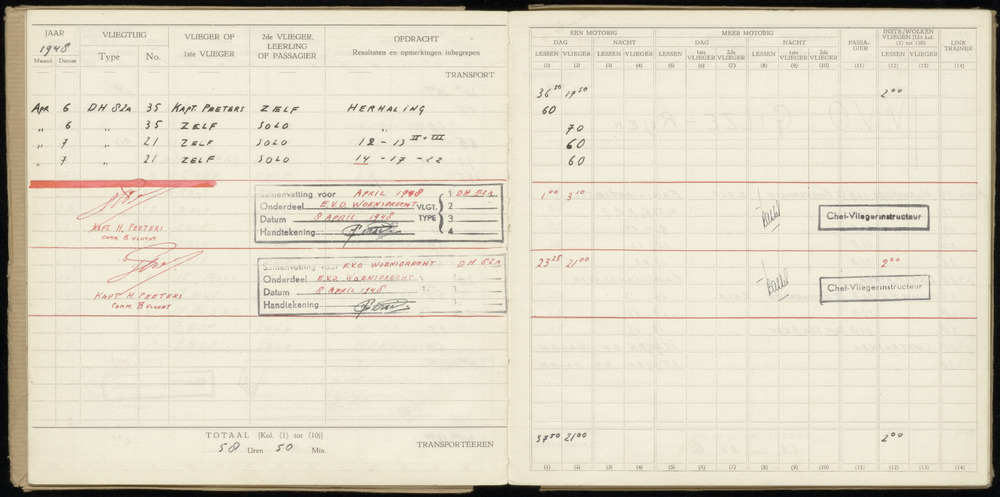 JAAR
1948
Maand Datum
VLIEGTUIG
Type No.
VLIEGER OF
1ste VLIEGER
2de VLIEGER,
LEERLING
OF PASSAGIER
OPDRACHT
Resultaten en opmerkingen inbegrepen
TRANSPORT
Apr 6 DH 82A 35 KAPT. PEETERS ZELF HERHALING
" 6 " 35 ZELF SOLO "
" 7 " 21 ZELF SOLO 12 - 13 II + III
" 7 " 21 ZELF SOLO 14 - 17 - 22
KAPT. H. PEETERS
COMM. B VLUCHT
Samenvatting voor APRIL 1948 1 DH 82A
Onderdeel E.V.O. WOENSDRECHT VLGT. 2
Datum 8 APRIL 1948 TYPE 3
Handtekening 4
KAPT. H. PEETERS
COMM. B VLUCHT
Samenvatting voor EVO WOENSDRECHT DH 82A
Onderdeel EVO WOENSDRECHT
Datum 8 APRIL 1948
Handtekening
TOTAAL [Kol. (1) tot (10)]
58 Uren 50 Min.
TRANSPORTEEREN
EEN MOTORIG
DAG NACHT
LESSEN VLIEGER LESSEN VLIEGER
(1) (2) (3) (4)
MEER MOTORIG
DAG NACHT
LESSEN 1ste VLIEGER 2de VLIEGER LESSEN 1ste VLIEGER 2de VLIEGER
(5) (6) (7) (8) (9) (10)
PASSA-
GIER
(11)
INSTR./WOLKEN
VLIEGEN [Uit kol.
(1) tot (10)]
LESSEN VLIEGER
(12) (13)
LINK
TRAINER
(14)
36 50 17 50 2 00
60
70
60
60
1 00 3 10
Chef-Vliegerinstructeur
23 25 21 00 2 00
Chef-Vliegerinstructeur
37 50 21 00 2 00
(1) (2) (3) (4) (5) (6) (7) (8) (9) (10) (11) (12) (13) (14)